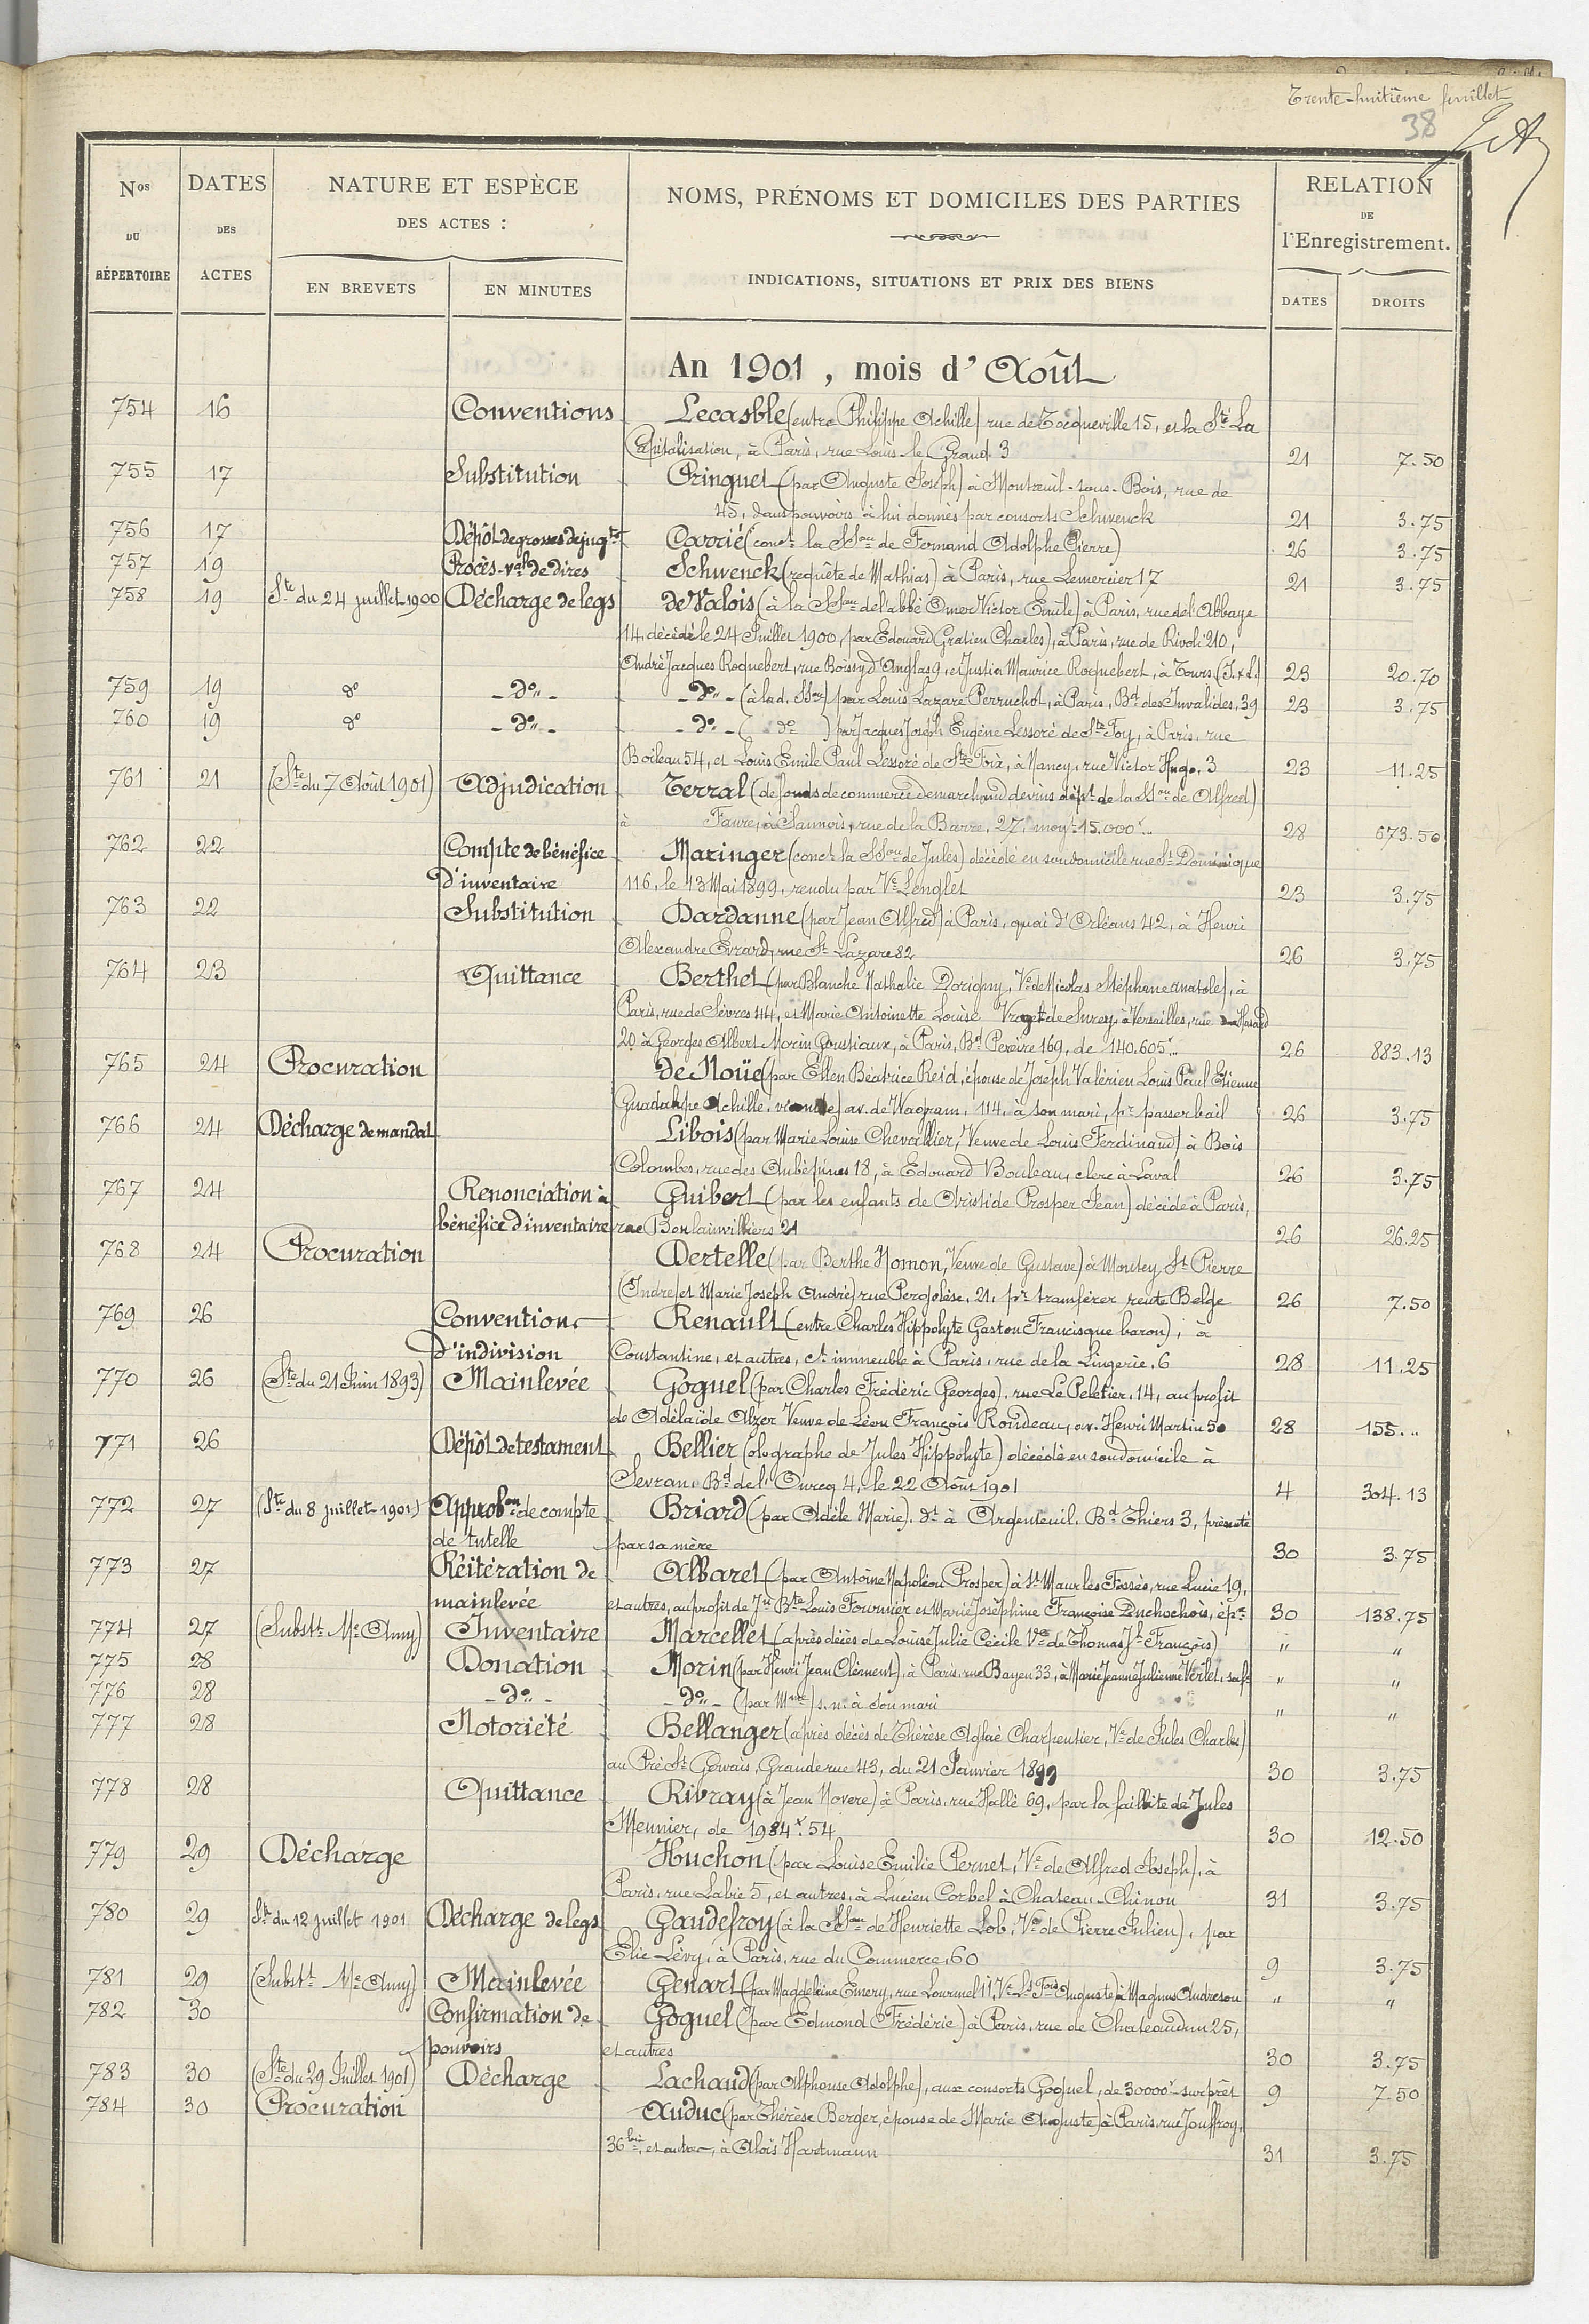 Trente-huitième feuillet
38
Nos DU RÉPERTOIRE
DATES DES ACTES
NATURE ET ESPÈCE DES ACTES :
EN BREVETS
EN MINUTES
NOMS, PRÉNOMS ET DOMICILES DES PARTIES
INDICATIONS, SITUATIONS ET PRIX DES BIENS
RELATION DE l'Enregistrement.
DATES
DROITS
An 1901, mois d'Août
754 16 Conventions Lecasble (entre Philippe Achille) rue de Tocqueville 15, et la Sté La
Capitalisation, à Paris, rue Louis le Grand 3 21 7.50
755 17 Substitution Pringuet (par Auguste Joseph) à Montreuil-sous-Bois, rue de
45, dans pouvoirs à lui donnés par consorts Schwenck 21 3.75
756 17 Dépôt de grosses de jugts Carrié (conct la SSon de Fernand Adolphe Pierre) 26 3.75
757 19 Procès-val de dires Schwenck (requête de Mathias) à Paris, rue Lemercier 17 21 3.75
758 19 Ste du 24 juillet 1900 Décharge de legs de Valois (à la SSon de l'abbé Omer Victor Emile) à Paris, rue de l'Abbaye
14, décédé le 24 Juillet 1900, par Edouard Gratien Charles), à Paris, rue de Rivoli 210,
André Jacques Roquebert, rue Boissy d'Anglas 9, et Justin Maurice Roquebert, à Tours (I. & L.) 23 20.70
759 19 do -do- -do- (à lad. SSon) par Louis Lazare Perruchot, à Paris, Bd des Invalides, 39 23 3.75
760 19 do -do- -do- ( do ) par Jacques Joseph Eugène Lessoré de Ste Foy, à Paris, rue
Boileau 54, et Louis Emile Paul Lessoré de Ste Foix, à Nancy, rue Victor Hugo, 3 23 11.25
761 21 (Ste du 7 Août 1901) Adjudication Terral (de fonds de commerce de marchand de vins dépt de la SSon de Alfred)
à Faure, à Sannois, rue de la Barre, 27, moyt 15.000f.. 28 673.50
762 22 Compte de bénéfice Maringer (conct la SSon de Jules) décédé en son domicile rue St Dominique
d'inventaire 116, le 13 Mai 1899, rendu par Ve Lenglet 23 3.75
763 22 Substitution Dardanne (par Jean Alfred) à Paris, quai d'Orléans 42, à Henri
Alexandre Evrard, rue St Lazare 82 26 3.75
764 23 Quittance Berthet (par Blanche Nathalie Dorigny, Ve de Nicolas Stéphane Anatole), à
Paris, rue de Sèvres 44, et Marie Antoinette Louise de Surey, à Versailles, rue
20 à Georges Albert Morin Goustiaux, à Paris, Bd Pereire 169, de 140.605f.. 26 883.13
765 24 Procuration de Noüe (par Ellen Béatrice Reid, épouse de Joseph Valérien Louis Paul Etienne
Guadalupe Achille, vicomte) av. de Wagram, 114, à son mari, pr passer bail 26 3.75
766 24 Décharge de mandat Libois (par Marie Louise Chevallier, Veuve de Louis Ferdinand) à Bois
Colombes, rue des Aubépines 18, à Edouard Bouleau, clerc à Laval 26 3.75
767 24 Renonciation à Guibert (par les enfants de Aristide Prosper Jean) décédé à Paris,
bénéfice d'inventaire rue Boulainvilliers 21 26 26.25
768 24 Procuration Dertelle (par Berthe Homon, Veuve de Gustave) à St Pierre
(Indre) et Marie Joseph André) rue Pergolèse, 21, pr transférer rente Belge 26 7.50
769 26 Convention Renault (entre Charles Hippolyte Gaston Francisque baron), à
d'indivision Constantine, et autres, ct immeuble à Paris, rue de la Lingerie, 6 28 11.25
770 26 (Ste du 21 Juin 1893) Mainlevée Goguel (par Charles Frédéric Georges), rue Le Peletier, 14, au profit
de Adélaïde Veuve de Léon François Rondeau, av. Henri Martin 50 28 155...
771 26 Dépôt de testament Bellier (olographe de Jules Hippolyte) décédé en son domicile à
Sevran, Bd de l'Ourcq 4, le 22 Août 1901 4 304.13
772 27 (Ste du 8 juillet 1901) Approbon de compte Briard (par Adèle Marie), dt à Argenteuil, Bd Thiers 3, présenté
de tutelle par sa mère 30 3.75
773 27 Réitération de Albaret (par Antoine Napoléon Prosper) à St Maur les Fossés, rue Lucie 19,
mainlevée et autres, au profit de Jn Bte Louis Fournier et Marie Joséphine Françoise Duchochois, épse 30 138.75
774 27 (Substt Me Amy) Inventaire Marcellet (après décès de Louise Julie Cécile Ve de Thomas Jh François) " "
775 28 Donation Morin (par Henri Jean Clément), à Paris, rue Bayen 33, à Marie Jeanne Julienne Verlet, sa fe " "
776 28 -do- -do- (par Mme) s.n. à son mari " "
777 28 Notoriété Bellanger (après décès de Thérèse Aglaé Charpentier, Ve de Jules Charles)
au Pré St Gervais, Grande rue 43, du 21 Janvier 1899 30 3.75
778 28 Quittance Rivray (à Jean Novere) à Paris, rue Hallé 69, par la faillite de Jules
Meunier, de 1984f.54 30 12.50
779 29 Décharge Huchon (par Louise Emilie Pernet, Ve de Alfred Joseph), à
Paris, rue Labie 5, et autres, à Lucien Corbel à Chateau-Chinon 31 3.75
780 29 Ste du 12 juillet 1901 Décharge de legs Gaudefroy (à la SSon de Henriette Lob, Ve de Pierre Julien), par
Elie Lévy, à Paris, rue du Commerce, 60 9 3.75
781 29 (Substt Me Amy) Mainlevée Genart (par Magdeleine Emery, rue Lourmel 11, Ve Ls Fois Auguste) à Magnus Andreson " "
782 30 Confirmation de Goguel (par Edmond Frédéric) à Paris, rue de Chateaudun 25,
pouvoirs et autres 30 3.75
783 30 (Ste du 29 Juillet 1901) Décharge Lachaud (par Alphonse Adolphe), aux consorts Goguel, de 30000f sur prêt 9 7.50
784 30 Procuration Auduc (par Thérèse Berger, épouse de Marie Auguste) à Paris, rue Jouffroy,
36 bis, et autre, à Aloïs Hartmann 31 3.75